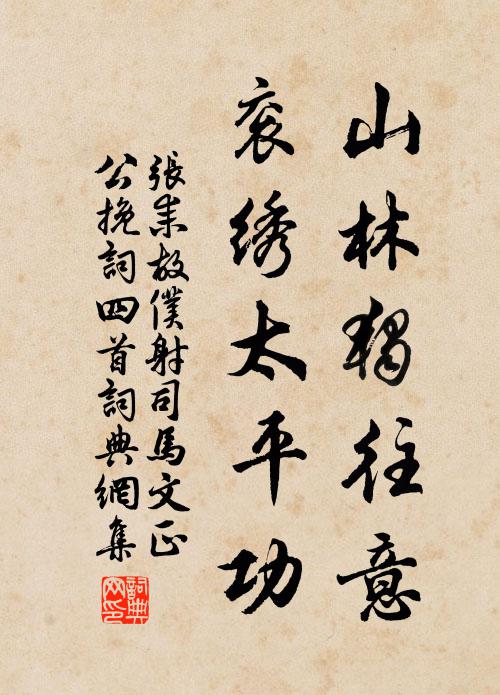 山林獨往意
衮綉太平功
張耒故僕射司馬文正
公挽詞四首詞典網集
詞典網印